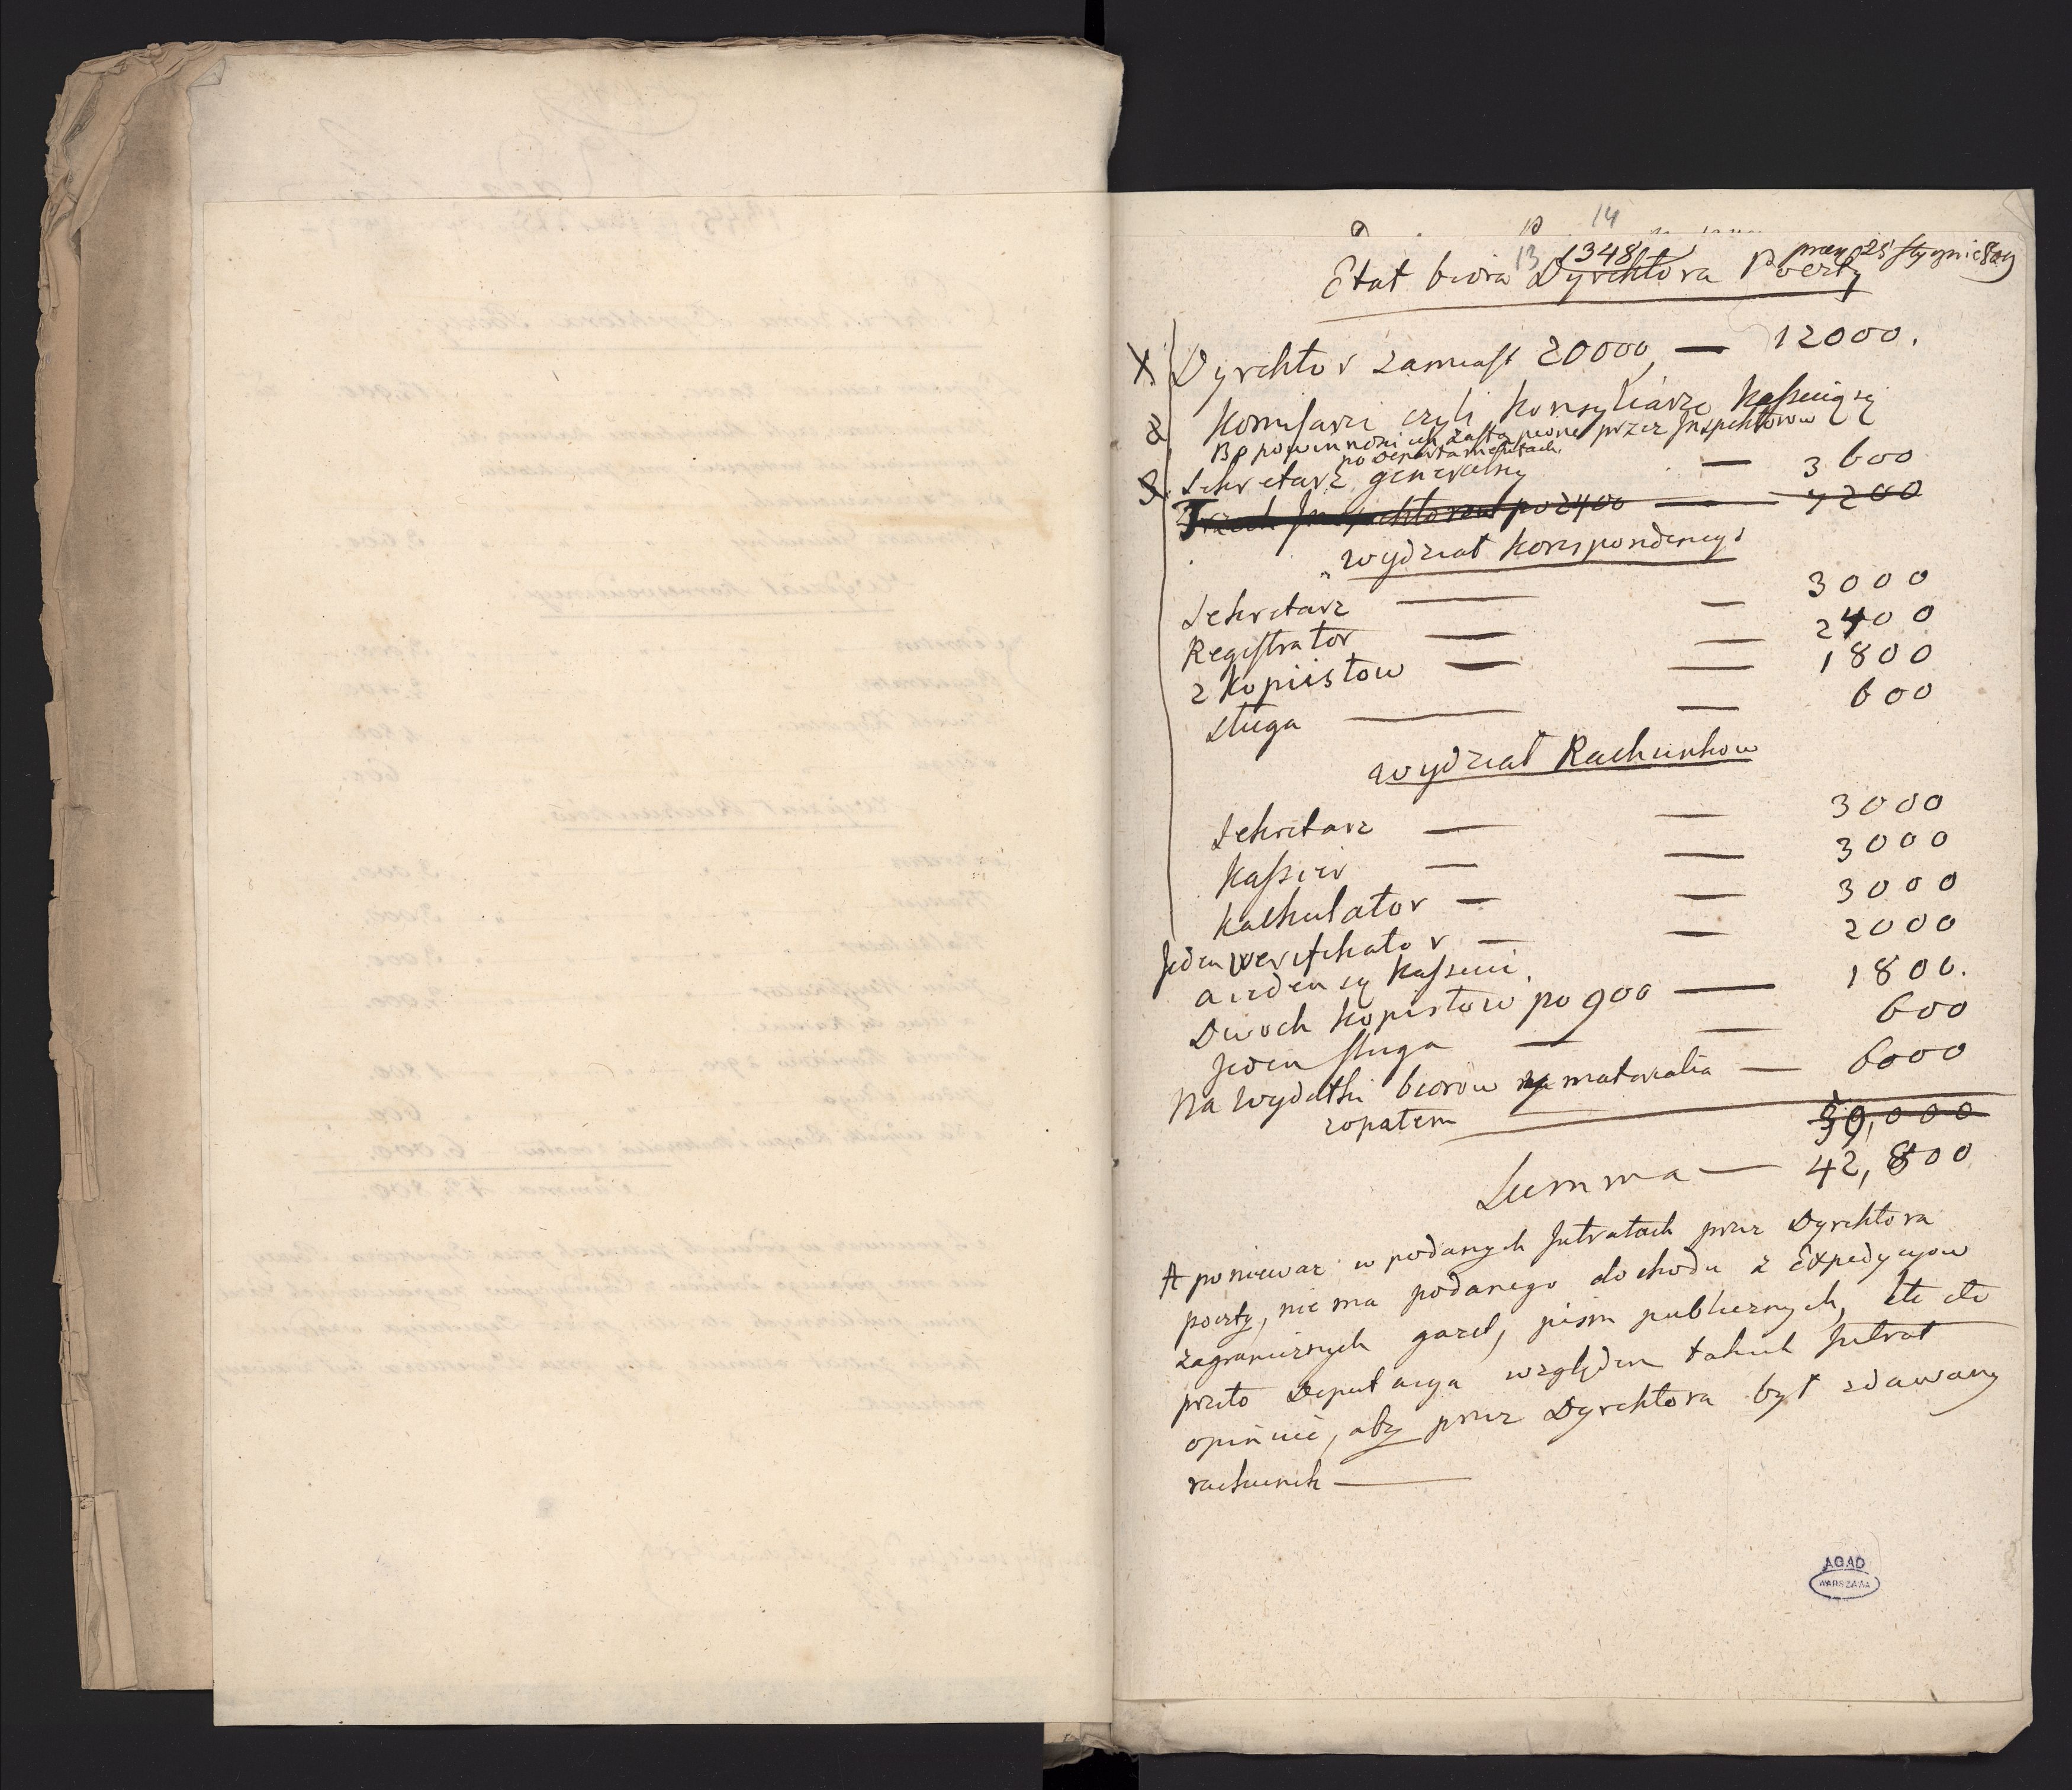 14
13 1348
Etat biora Dyrektora Poczty
1. Dyrektor zamiast 20000 — 12000.
2. Komisarze czyli Konsyliarze kassuią się
Bo powinni być zastąpieni przez Inspektorow
po departamentach
3. Sekretarz generalny — 3600
Trzech Inspektorow po 2400 — 7200
wydział korespondencyi
Sekretarz — — 3000
Registrator — — 2400
2 Kopiistow — — 1800
Sługa — — 600
wydział Rachunkow
Sekretarz — — 3000
Kassier — — 3000
Kalkulator — — 3000
Jeden weryfikator — — 2000
a ieden się kassuie.
Dwoch kopistow po 900 — 1800.
Jeden sługa — — 600
Na wydatki biorow materialia — 6000
z opałem
50,000
Summa — 42,800
A poniewaz w podanych Intratach przez Dyrektora
poczty, nie ma podanego dochodu z Expedycyow
zagranicznych gazet, pism publicznych, etc etc
przeto Deputacya względem takich Intrat
opiniuie, aby przez Dyrektora był zdawany
rachunek —
AGAD
WARSZAWA